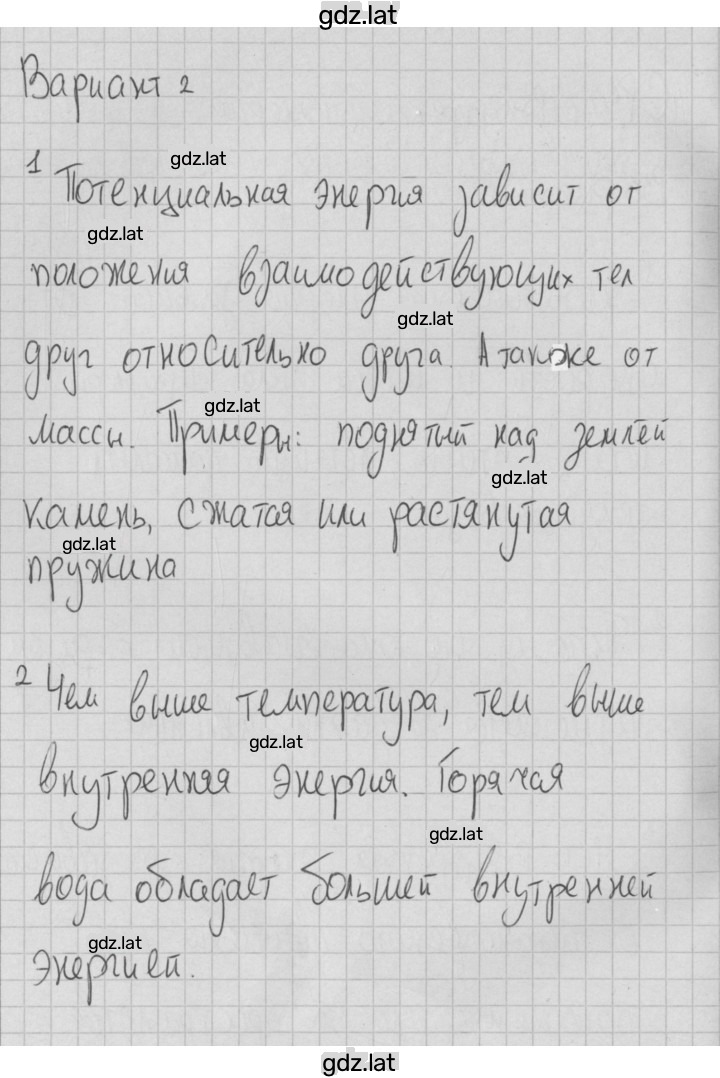 gdz.lat
Вариант 2
gdz.lat
1 Потенциальная энергия зависит от
gdz.lat
положения взаимодействующих тел
gdz.lat
друг относительно друга. А также от
gdz.lat
массы. Примеры: поднятый над землей
gdz.lat
камень, сжатая или растянутая
gdz.lat
пружина
2 Чем выше температура, тем выше
gdz.lat
внутренняя энергия. Горячая
gdz.lat
вода обладает большей внутренней
gdz.lat
энергией.
gdz.lat